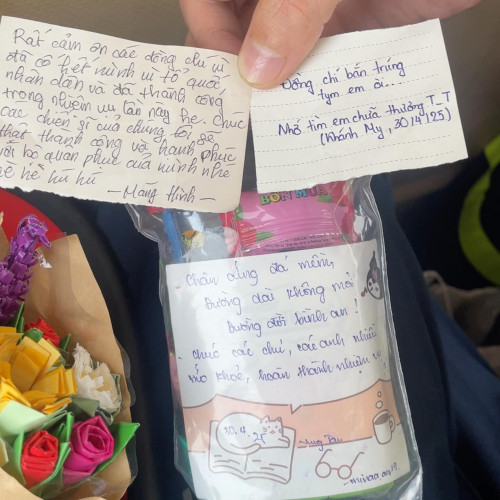 Rất cảm ơn các đồng chí vì
đã cố hết mình vì tổ quốc
nhân dân và đã thành công
trong nhiệm vụ lần này he. Chúc
các chiến sĩ của chúng tôi sẽ
thật thành công và hạnh phúc
với bộ quân phục của mình nhé
hè hè hú hú
– Măng Thịnh –
Đồng chí bắn trúng
tym em òi....
Nhớ tìm em chữa thương T_T
(Khánh My, 30/4/25)
BON MUA
- Chân cứng đá mềm,
Đường dài không mỏi
Đường đời bình an!
- chúc các chú, các anh nhiều
sức khoẻ, hoàn thành nhiệm vụ
30.4.25